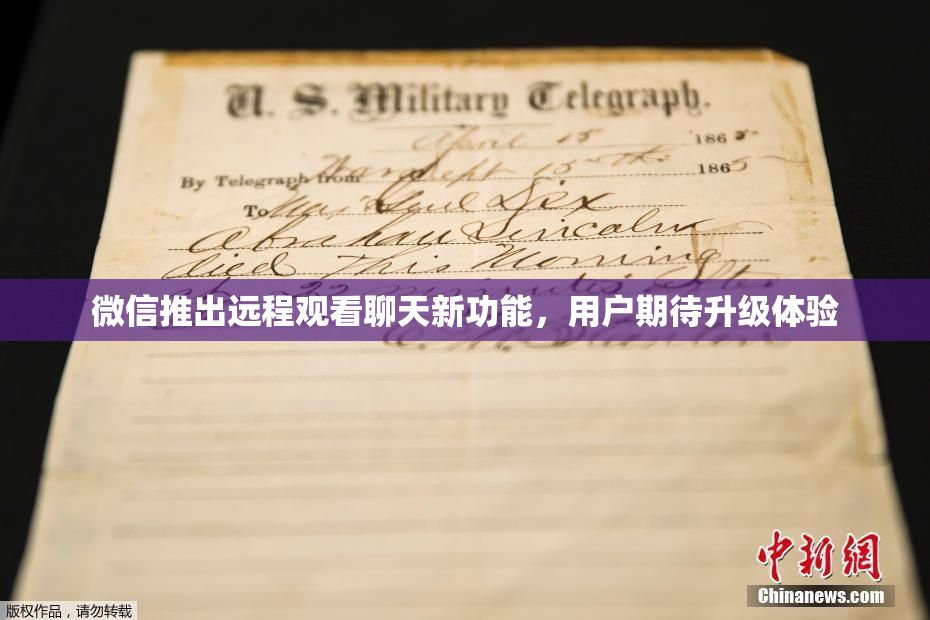 U. S. Military Telegraph.
April 15 1865
By Telegraph from War Dept 15th 1865
To Maj Genl Dix
Abraham Lincoln
died This Morning
22 minutes after
微信推出远程观看聊天新功能，用户期待升级体验
E. M. Stanton
中新網
Chinanews.com
版权作品，请勿转载